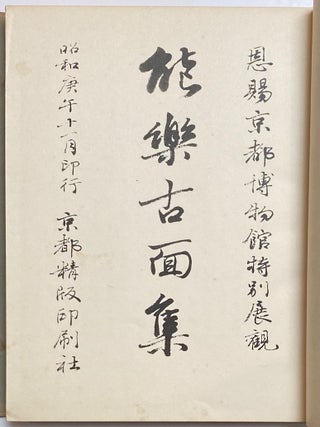 恩賜京都博物館特別展觀
能樂古面集
昭和庚午十一月印行 京都精版印刷社